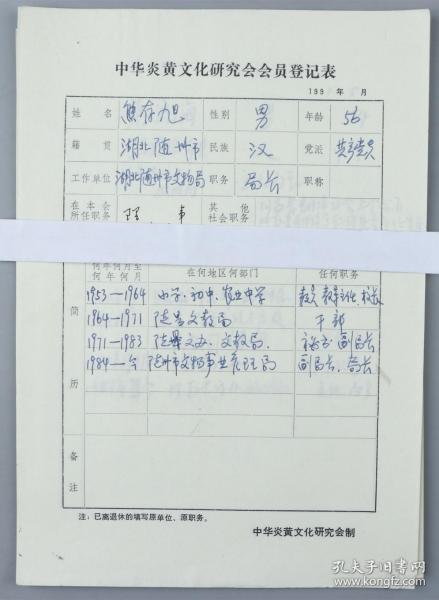 中华炎黄文化研究会会员登记表
199 年 月
姓 名 熊存旭 性别 男 年龄 56
籍 贯 湖北随州市 民族 汉 党派 共产党员
工作单位 湖北随州市文物局 职务 局长 职称
在本会所任职务 理事 其他社会职务
何年何月至何年何月 在何地区何部门 任何职务
简历
1953—1964 小学、初中、农业中学 教员 教导主任 校长
1964—1971 随县文教局 干部
1971—1983 随县文办、文教局 秘书 副局长
1984—今 随州市文物事业管理局 副局长、局长
备注
注：已离退休的填写原单位、原职务。
中华炎黄文化研究会制
孔夫子旧书网
www.kongfz.com